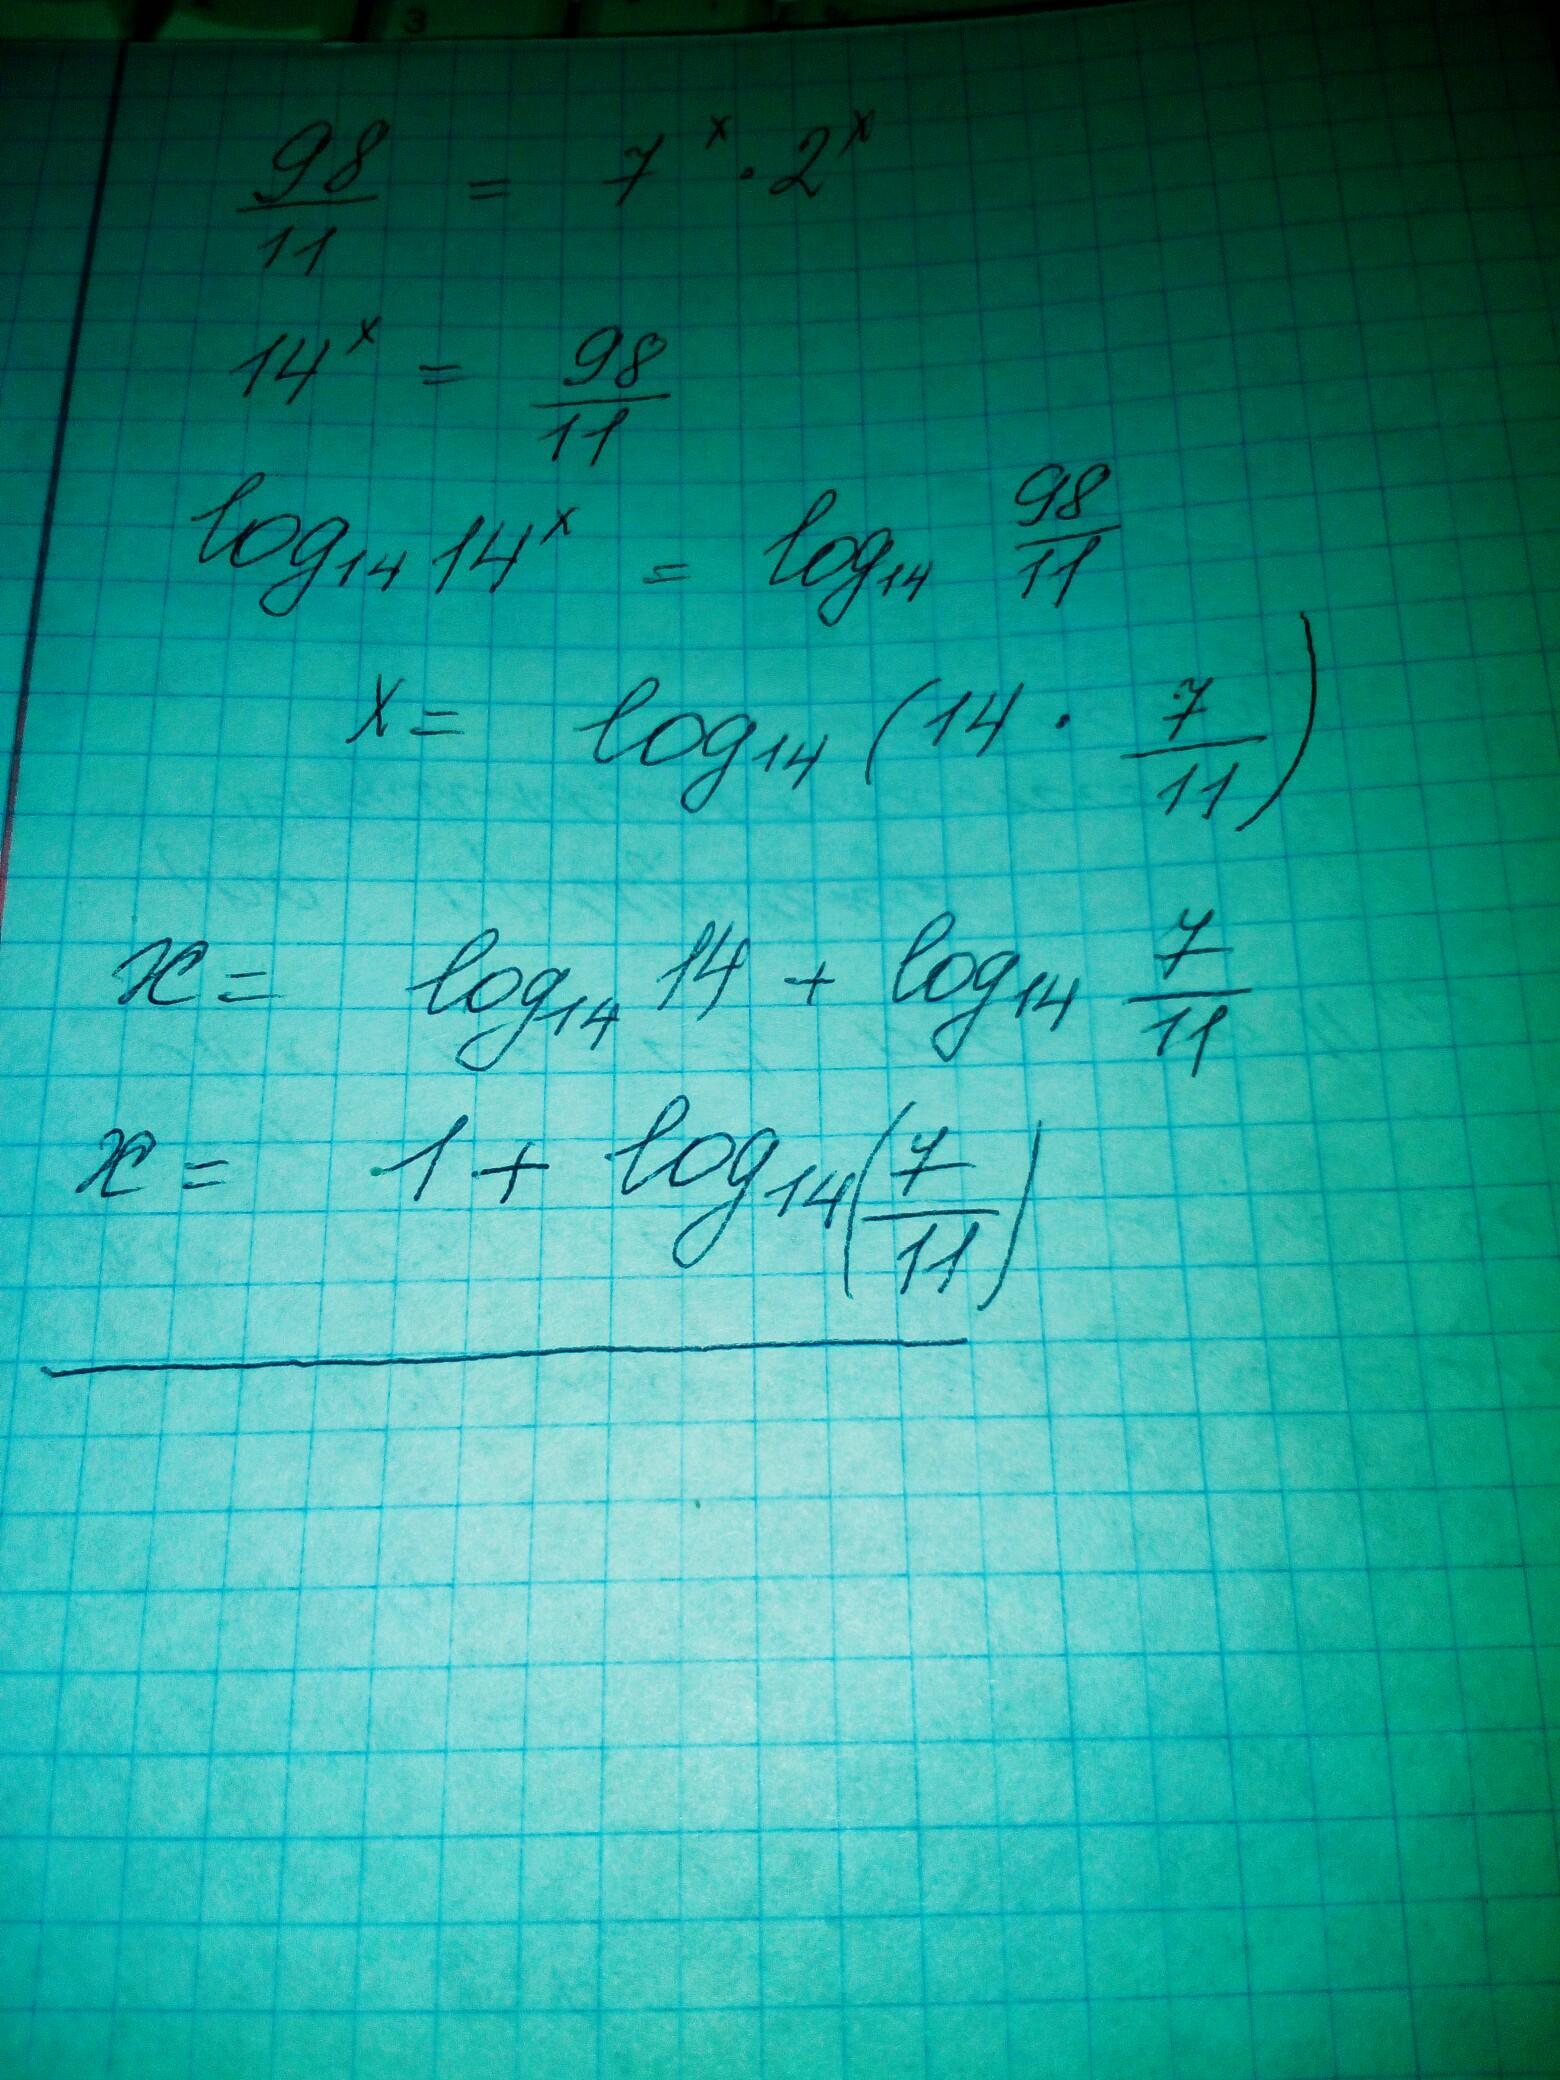 98/11 = 7^x · 2^x
14^x = 98/11
log₁₄ 14^x = log₁₄ 98/11
x = log₁₄ (14 · 7/11)
x = log₁₄ 14 + log₁₄ 7/11
x = 1 + log₁₄ (7/11)